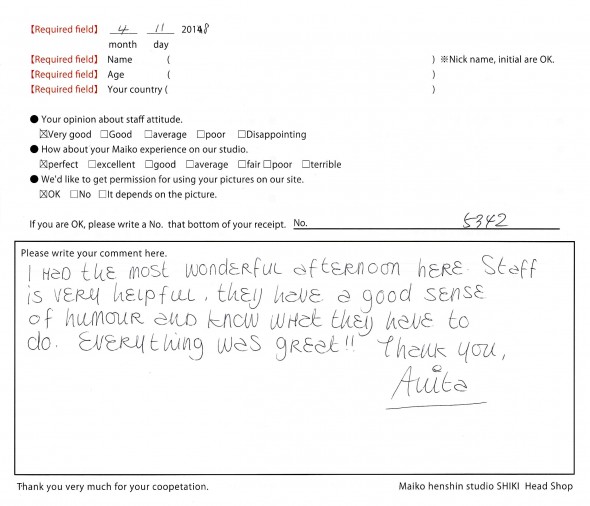 【Required field】 4 11 2018
month day
【Required field】 Name ( ) ※Nick name, initial are OK.
【Required field】 Age ( )
【Required field】 Your country ( )
● Your opinion about staff attitude.
☒Very good □Good □average □poor □Disappointing
● How about your Maiko experience on our studio.
☒perfect □excellent □good □average □fair □poor □terrible
● We'd like to get permission for using your pictures on our site.
☒OK □No □It depends on the picture.
If you are OK, please write a No. that bottom of your receipt. No. 5342
Please write your comment here.
I Had the most wonderful afternoon here. Staff
is very helpful, they have a good sense
of humour and know what they have to
do. Everything was great!! Thank you,
Anita
Thank you very much for your coopetation. Maiko henshin studio SHIKI Head Shop